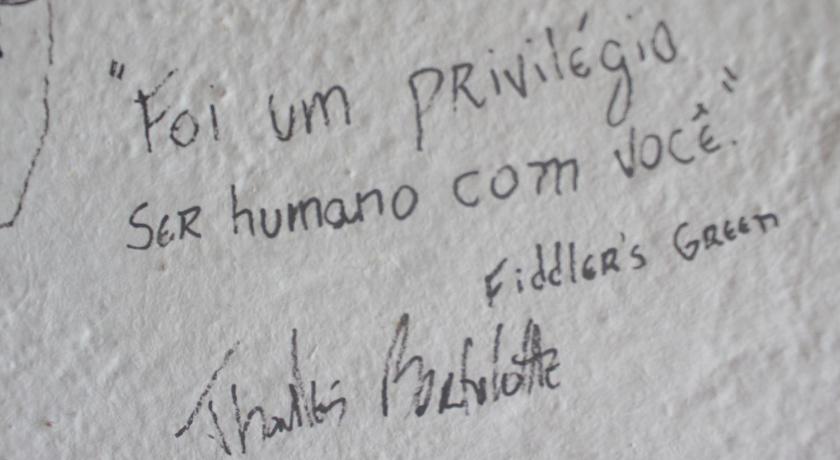 "Foi um PRiVilégio
SER humano com VOCÊ."
FiddlER's GREEn
Thalles Bortolotte